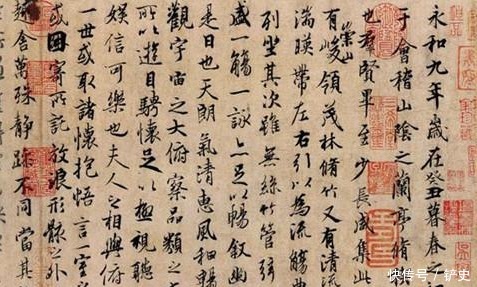 永和九年歲在癸丑暮春之
于會稽山陰之蘭亭脩禊
也羣賢畢至少長咸集此
有崇山峻領茂林脩竹又有清流
湍暎帶左右引以為流觴曲
列坐其次雖無絲竹管弦
盛一觴一詠亦足以暢敘幽
是日也天朗氣清惠風和暢
觀宇宙之大俯察品類之
所以遊目騁懷足以極視聽
娛信可樂也夫人之相與俯
一世或取諸懷抱悟言一室
或因寄所託放浪形骸之外
趣舍萬殊靜躁不同當其
快传号 / 铲史